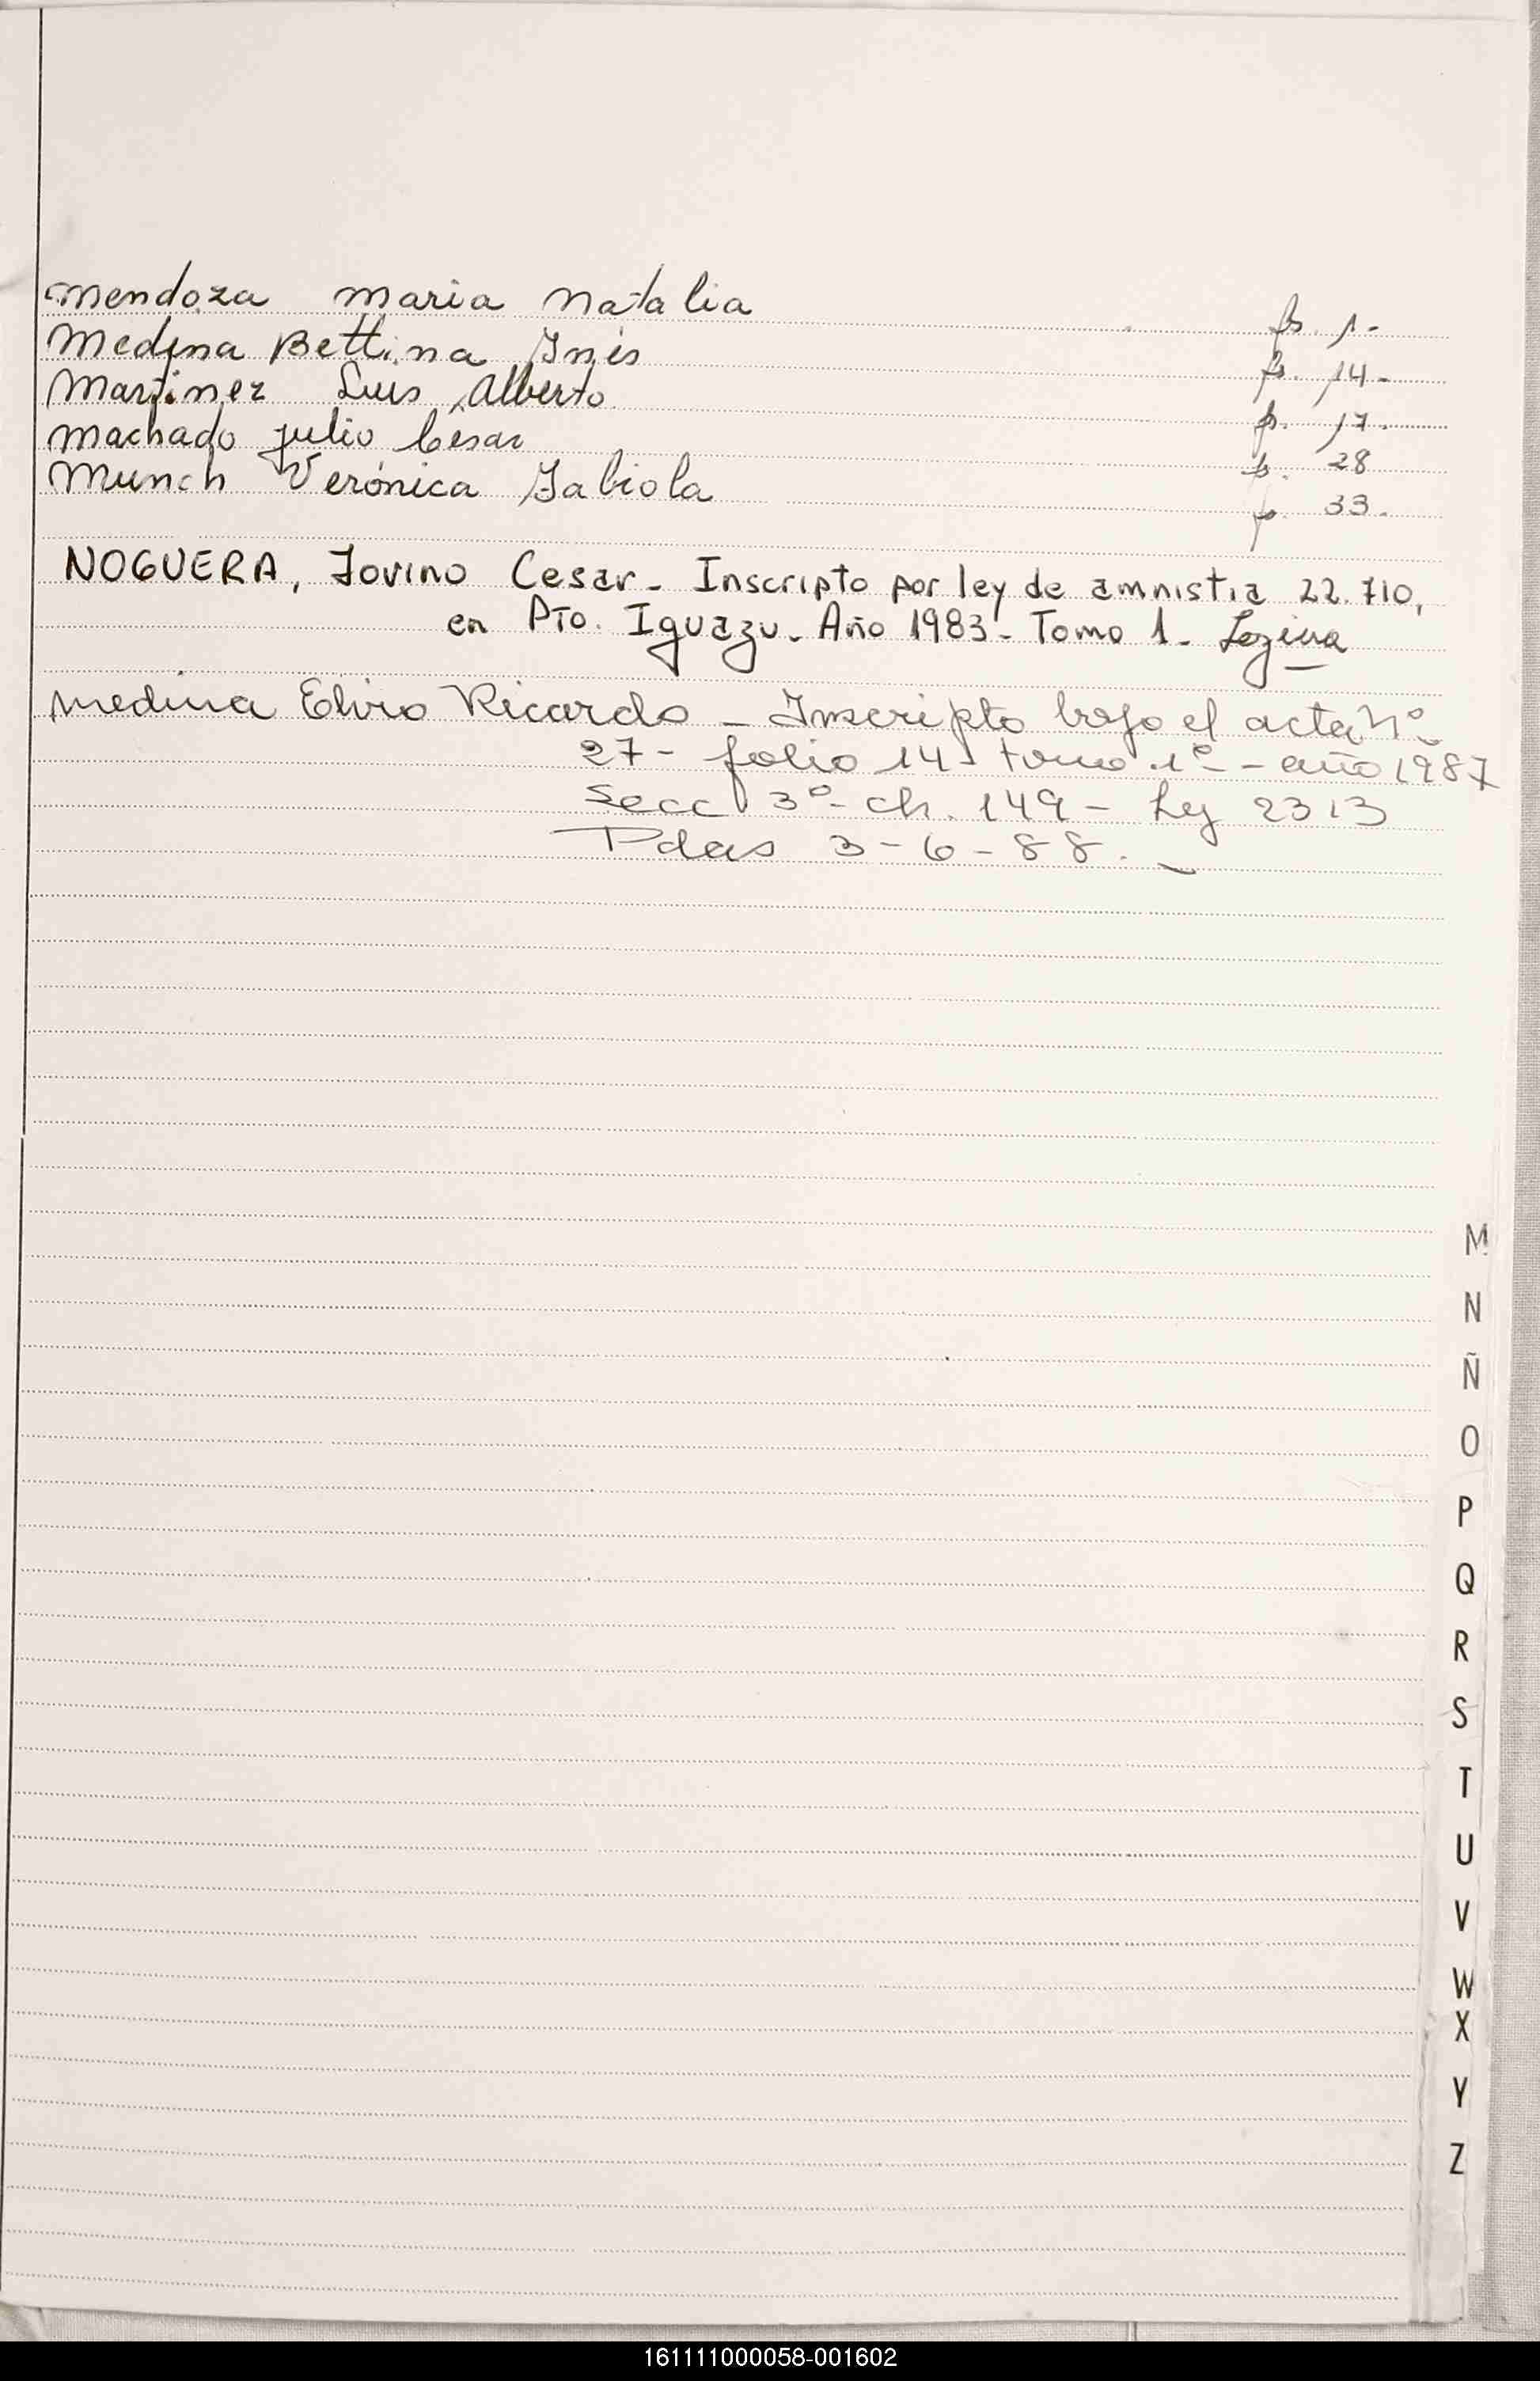 Mendoza Maria Natalia fs. 1-
Medina Bettina Inés fs. 14-
Martinez Luis Alberto fs. 17.
Machado Julio César fs. 28
Munch Verónica Fabiola fs. 33.
NOGUERA, Jovino Cesar- Inscripto por ley de amnistia 22.710,
en Pto. Iguazu- Año 1983- Tomo 1-
Medina Elvio Ricardo - Inscripto bajo el acta Nº
27- folio 14 tomo 1º - año 1987
Secc 3º- ch. 149 - Ley 2313
Pdas 3-6-88.
M
N
Ñ
O
P
Q
R
S
T
U
V
W
X
Y
Z
161111000058-001602